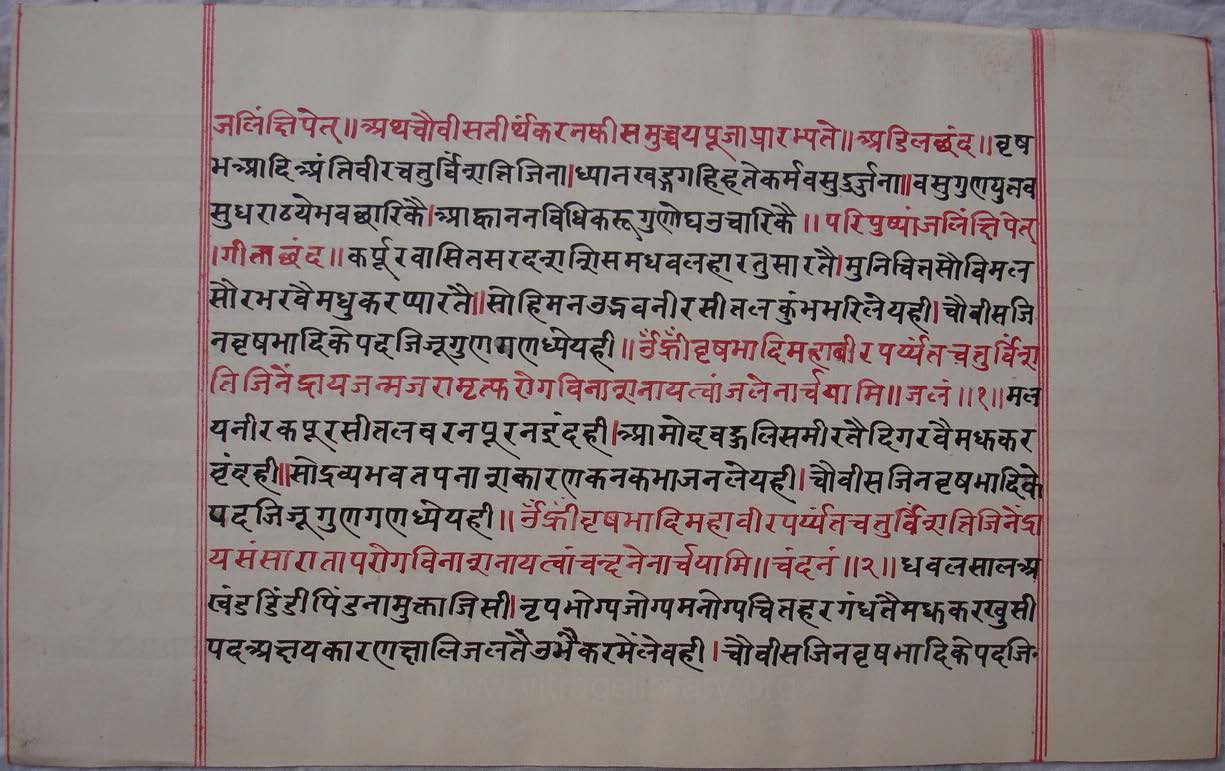 जलिंक्षिपेत्॥अथचौवीसतीर्थंकरनकीसमुच्चयपूजाप्रारम्पते॥अडिलछंद॥वृष
भआदिअंतिवीरचतुर्विंशतिजिना।ध्यानखड्गगहिहतेकर्मवसुदुर्जना॥वसुगुणयुतव
सुधराठयेभवछारिकै।आह्वाननविधिकरूगुणोघउचारिकै॥परिपुष्पांजलिंक्षिपेत्
।गीताछंद॥कर्पूरवासितसरदशशिसमधवलहारतुसारतै।मुनिचित्तसौविमल
सौरभरवैमधुकरप्यारतै॥सोहिमनउद्भवनीरसीतलकुंभभरिलेयही।चौवीसजि
नवृषभादिकेपदजिजूगुणगणध्येयही॥ॐह्रींवृषभादिमहावीरपर्य्यंतचतुर्विंश
तिजिनेंद्रायजन्मजरामृत्फरोगविनाशनायत्वांजलेनार्चयामि॥जलं॥१॥मल
यनीरकपूरसीतलवरनपूरनइंदही।आमोदवहुलिसमीरतैदिगरवैमझकर
वृंदही॥सोद्रव्यभवतपनाशकारणकनकभाजनलेयही।चौवीसजिनवृषभादिके
पदजिजूगुणगणध्येयही॥ॐह्रींवृषभादिमहावीरपर्य्यंतचतुर्विंशतिजिनेंद्रा
यसंसारातापरोगविनाशनायत्वांचन्दनेनार्चयामि॥चंदनं॥२॥धवलसालअ
खंडडिंडीपिंडनामुक्ताजिसी।नृपभोग्पजोग्पमनोग्पचितहरगंधतैमझकरखुसी
पदअक्षयकारणक्षालिजलतैउभैकरमेंलेवही।चौवीसजिनवृषभादिकेपदजि